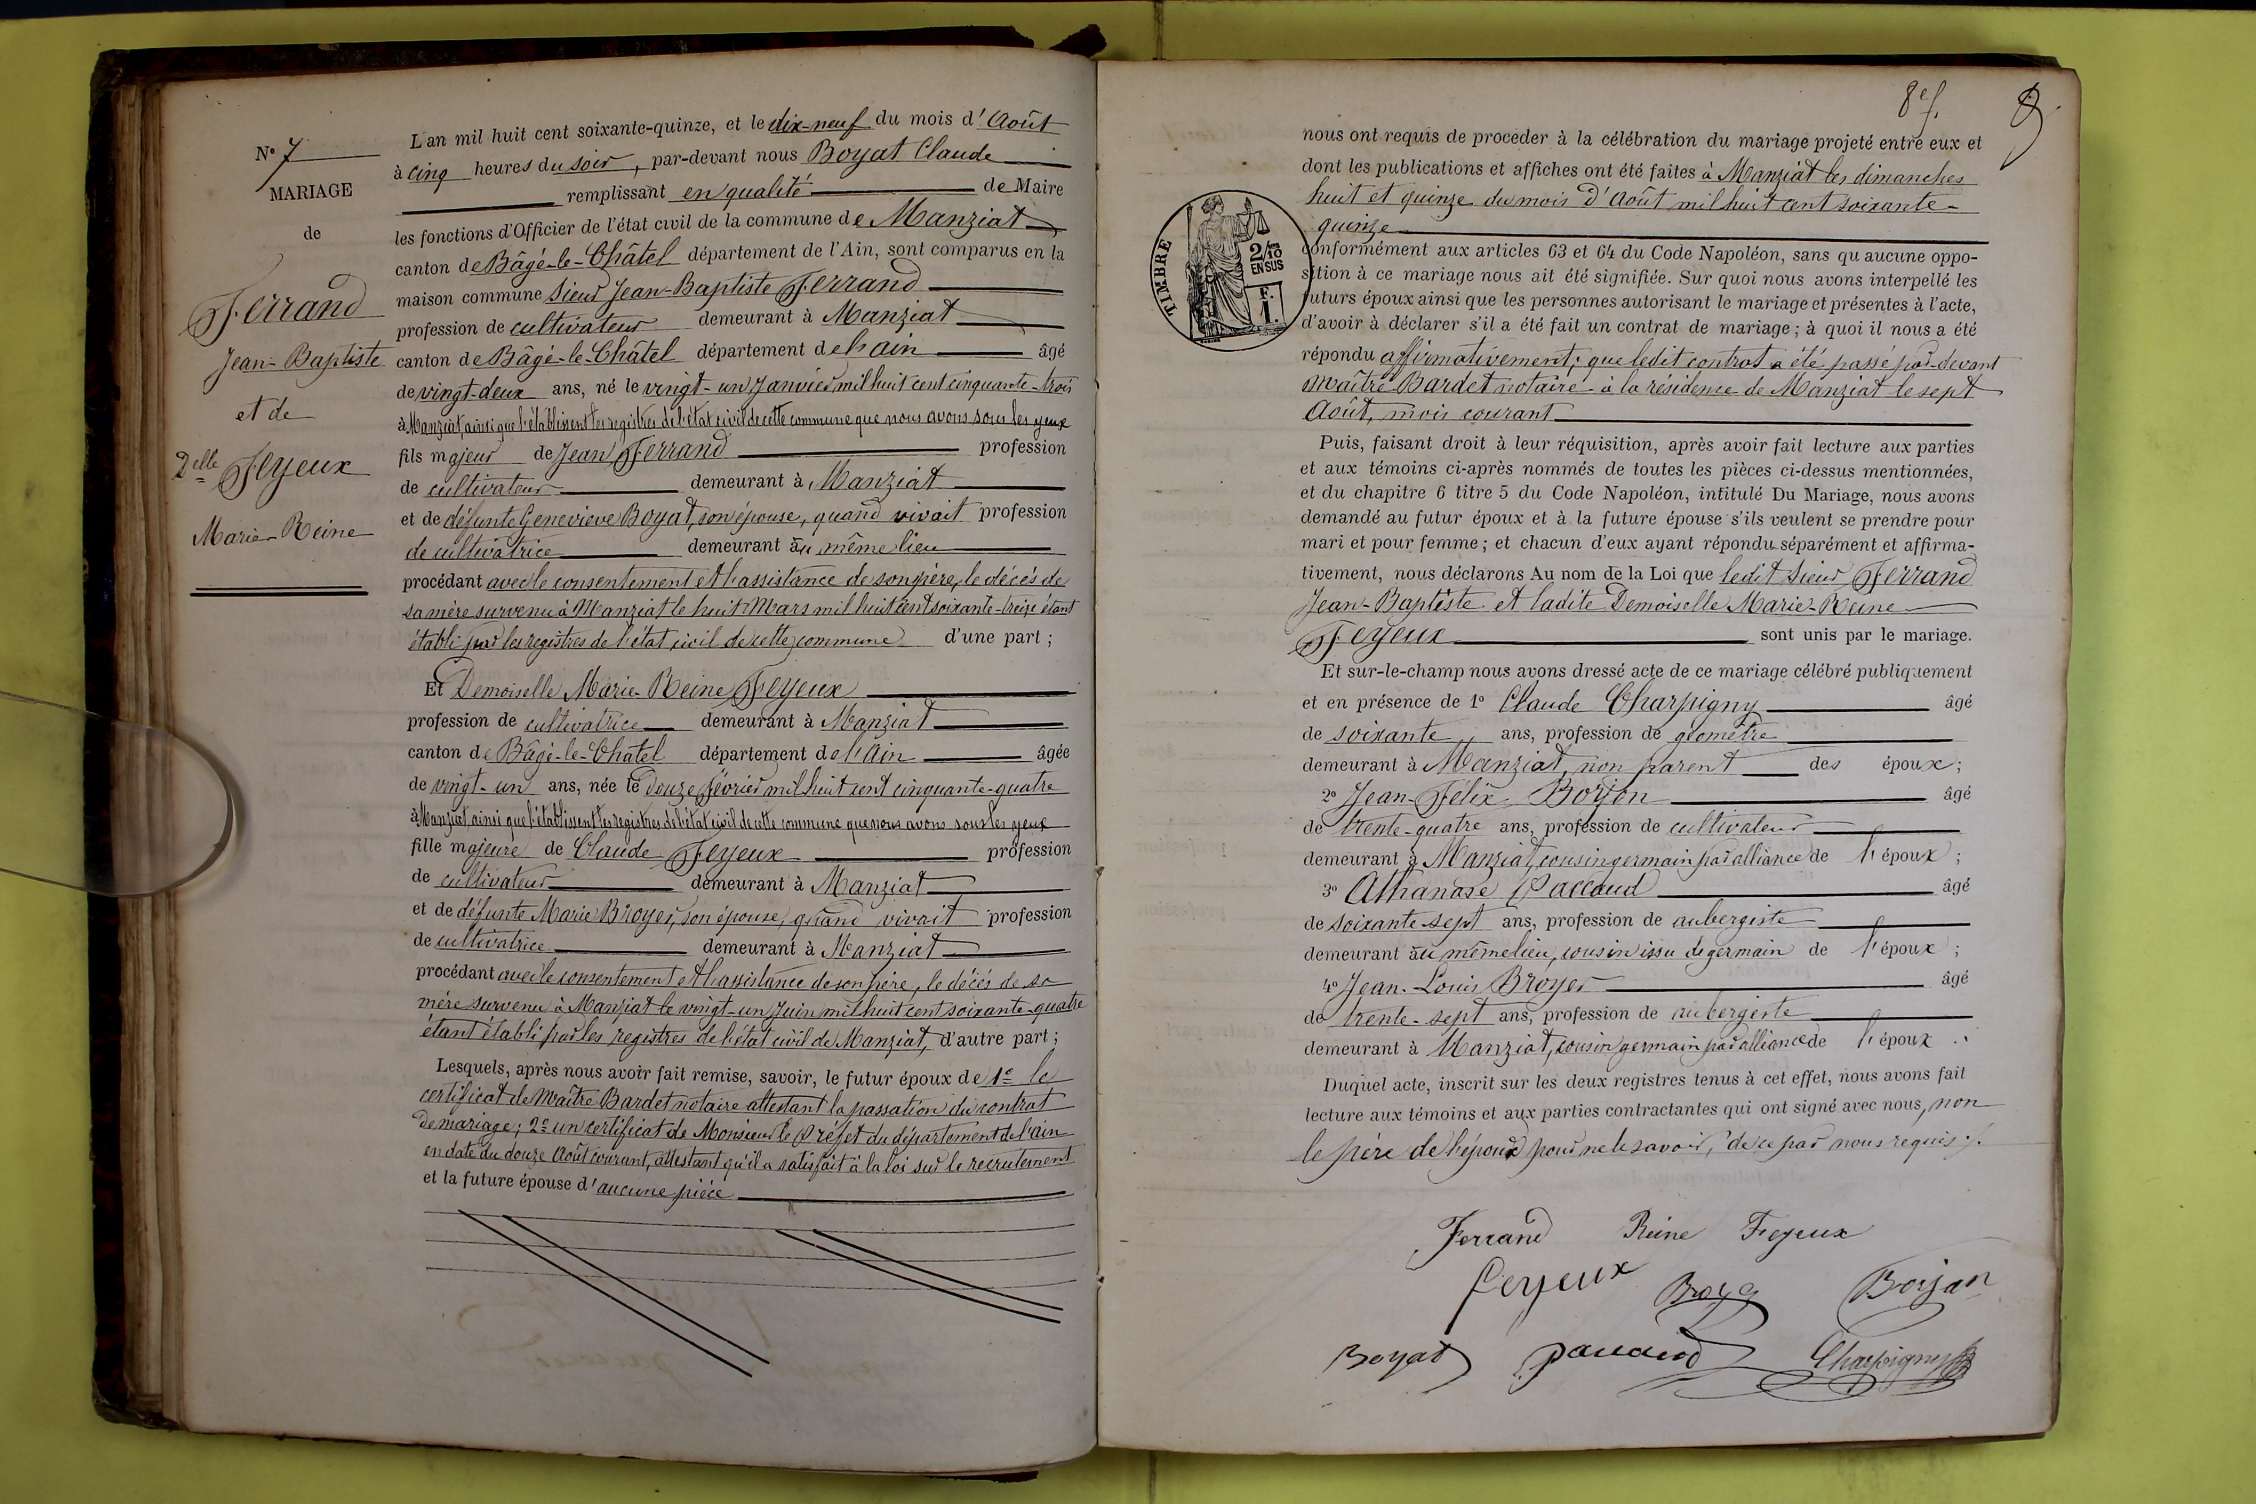 N° 7
MARIAGE
de
Ferrand
Jean-Baptiste
et de
Delle Feyeux
Marie-Reine
L'an mil huit cent soixante-quinze, et le dix-neuf du mois d'Août
à cinq heures du soir, par-devant nous Boyat Claude
remplissant en qualité de Maire
les fonctions d'Officier de l'état civil de la commune de Manziat
canton de Bâgé-le-Châtel département de l'Ain, sont comparus en la
maison commune Sieur Jean-Baptiste Ferrand
profession de cultivateur demeurant à Manziat
canton de Bâgé-le-Châtel département de l'ain âgé
de vingt-deux ans, né le vingt-un Janvier mil huit cent cinquante-trois
à Manziat, ainsi que l'établissent les registres de l'état civil de cette commune que nous avons sous les yeux
fils majeur de Jean Ferrand profession
de cultivateur demeurant à Manziat
et de défunte Geneviève Boyat, son épouse, quand vivait profession
de cultivatrice demeurant au même lieu
procédant avec le consentement et l'assistance de son père, le décés de
sa mère survenu à Manziat le huit Mars mil huit cent soixante-treize étant
établi par les registres de l'état civil de cette commune d'une part ;
Et Demoiselle Marie-Reine Feyeux
profession de cultivatrice demeurant à Manziat
canton de Bâgé-le-Châtel département de l'Ain âgée
de vingt-un ans, née le Douze Février mil huit cent cinquante-quatre
à Manziat, ainsi que l'établissent les registres de l'état civil de cette commune que nous avons sous les yeux
fille majeure de Claude Feyeux profession
de cultivateur demeurant à Manziat
et de défunte Marie Broyer, son épouse, quand vivait profession
de cultivatrice demeurant à Manziat
procédant avec le consentement et l'assistance de son père, le décés de sa
mère survenu à Manziat le vingt-un Juin mil huit cent soixante-quatre
étant établi par les registres de l'état civil de Manziat, d'autre part ;
Lesquels, après nous avoir fait remise, savoir, le futur époux de 1° le
certificat de Maître Bardet notaire attestant la passation du contrat
de mariage ; 2° un certificat de Monsieur le Préfet du département de l'ain
en date du douze Août courant, attestant qu'il a satisfait à la loi sur le recrutement
et la future épouse d'aucune pièce
8e f.
8
nous ont requis de proceder à la célébration du mariage projeté entre eux et
dont les publications et affiches ont été faites à Manziat les dimanches
huit et quinze du mois d'Août mil huit cent soixante-
quinze
TIMBRE
2/10
EN SUS
F.
1.
conformément aux articles 63 et 64 du Code Napoléon, sans qu'aucune oppo-
sition à ce mariage nous ait été signifiée. Sur quoi nous avons interpellé les
futurs époux ainsi que les personnes autorisant le mariage et présentes à l'acte,
d'avoir à déclarer s'il a été fait un contrat de mariage ; à quoi il nous a été
répondu affirmativement ; que ledit contrat a été passé par-devant
Maître Bardet notaire à la résidence de Manziat le sept
Août, mois courant
Puis, faisant droit à leur réquisition, après avoir fait lecture aux parties
et aux témoins ci-après nommés de toutes les pièces ci-dessus mentionnées,
et du chapitre 6 titre 5 du Code Napoléon, intitulé Du Mariage, nous avons
demandé au futur époux et à la future épouse s'ils veulent se prendre pour
mari et pour femme ; et chacun d'eux ayant répondu séparément et affirma-
tivement, nous déclarons Au nom de la Loi que ledit Sieur Ferrand
Jean-Baptiste et ladite Demoiselle Marie-Reine
Feyeux sont unis par le mariage.
Et sur-le-champ nous avons dressé acte de ce mariage célébré publiquement
et en présence de 1° Claude Charpigny âgé
de soixante ans, profession de géomètre
demeurant à Manziat, non parent des époux ;
2° Jean-Félix Boyon âgé
de trente-quatre ans, profession de cultivateur
demeurant à Manziat, cousin germain par alliance de l'époux ;
3° Athanase Paccaud âgé
de soixante-sept ans, profession de aubergiste
demeurant au même lieu, cousin issu de germain de l'époux ;
4° Jean-Louis Broyer âgé
de trente-sept ans, profession de aubergiste
demeurant à Manziat, cousin germain par alliance de l'époux .
Duquel acte, inscrit sur les deux registres tenus à cet effet, nous avons fait
lecture aux témoins et aux parties contractantes qui ont signé avec nous, non
le père de l'époux pour ne le savoir, de ce par nous requis ./.
Ferrand Reine Feyeux
Feyeux Broyer Boyon
Boyat Paccaud Charpigny